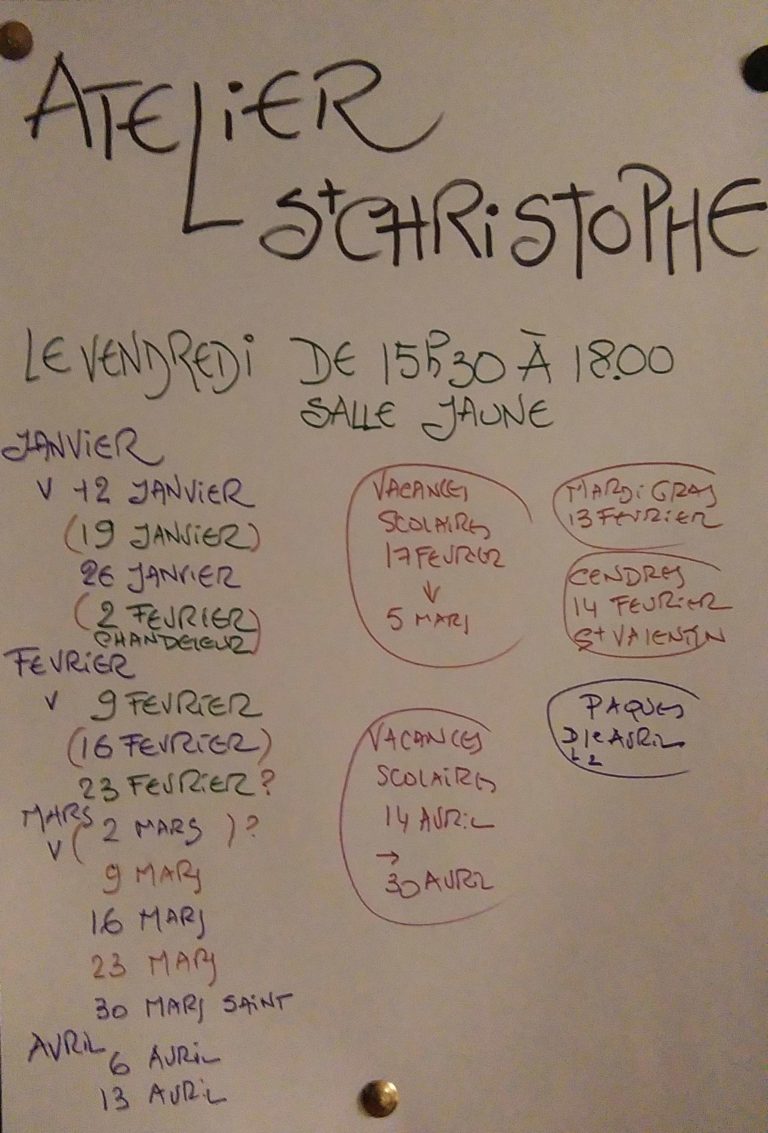 ATELIER
St CHRISTOPHE
LE VENDREDI DE 15h30 À 18.00
SALLE JAUNE
JANVIER
V 12 JANVIER
(19 JANVIER)
26 JANVIER
(2 FEVRIER)
CHANDELEUR)
FEVRIER
V 9 FEVRIER
(16 FEVRIER)
23 FEVRIER ?
MARS
V (2 MARS) ?
9 MARS
16 MARS
23 MARS
30 MARS SAINT
AVRIL
6 AVRIL
13 AVRIL
VACANCES
SCOLAIRES
17 FEVRIER
↓
5 MARS
VACANCES
SCOLAIRES
14 AVRIL
→
30 AVRIL
MARDI GRAS
13 FEVRIER
CENDRES
14 FEVRIER
St VALENTIN
PAQUES
D 1e AVRIL
L 2